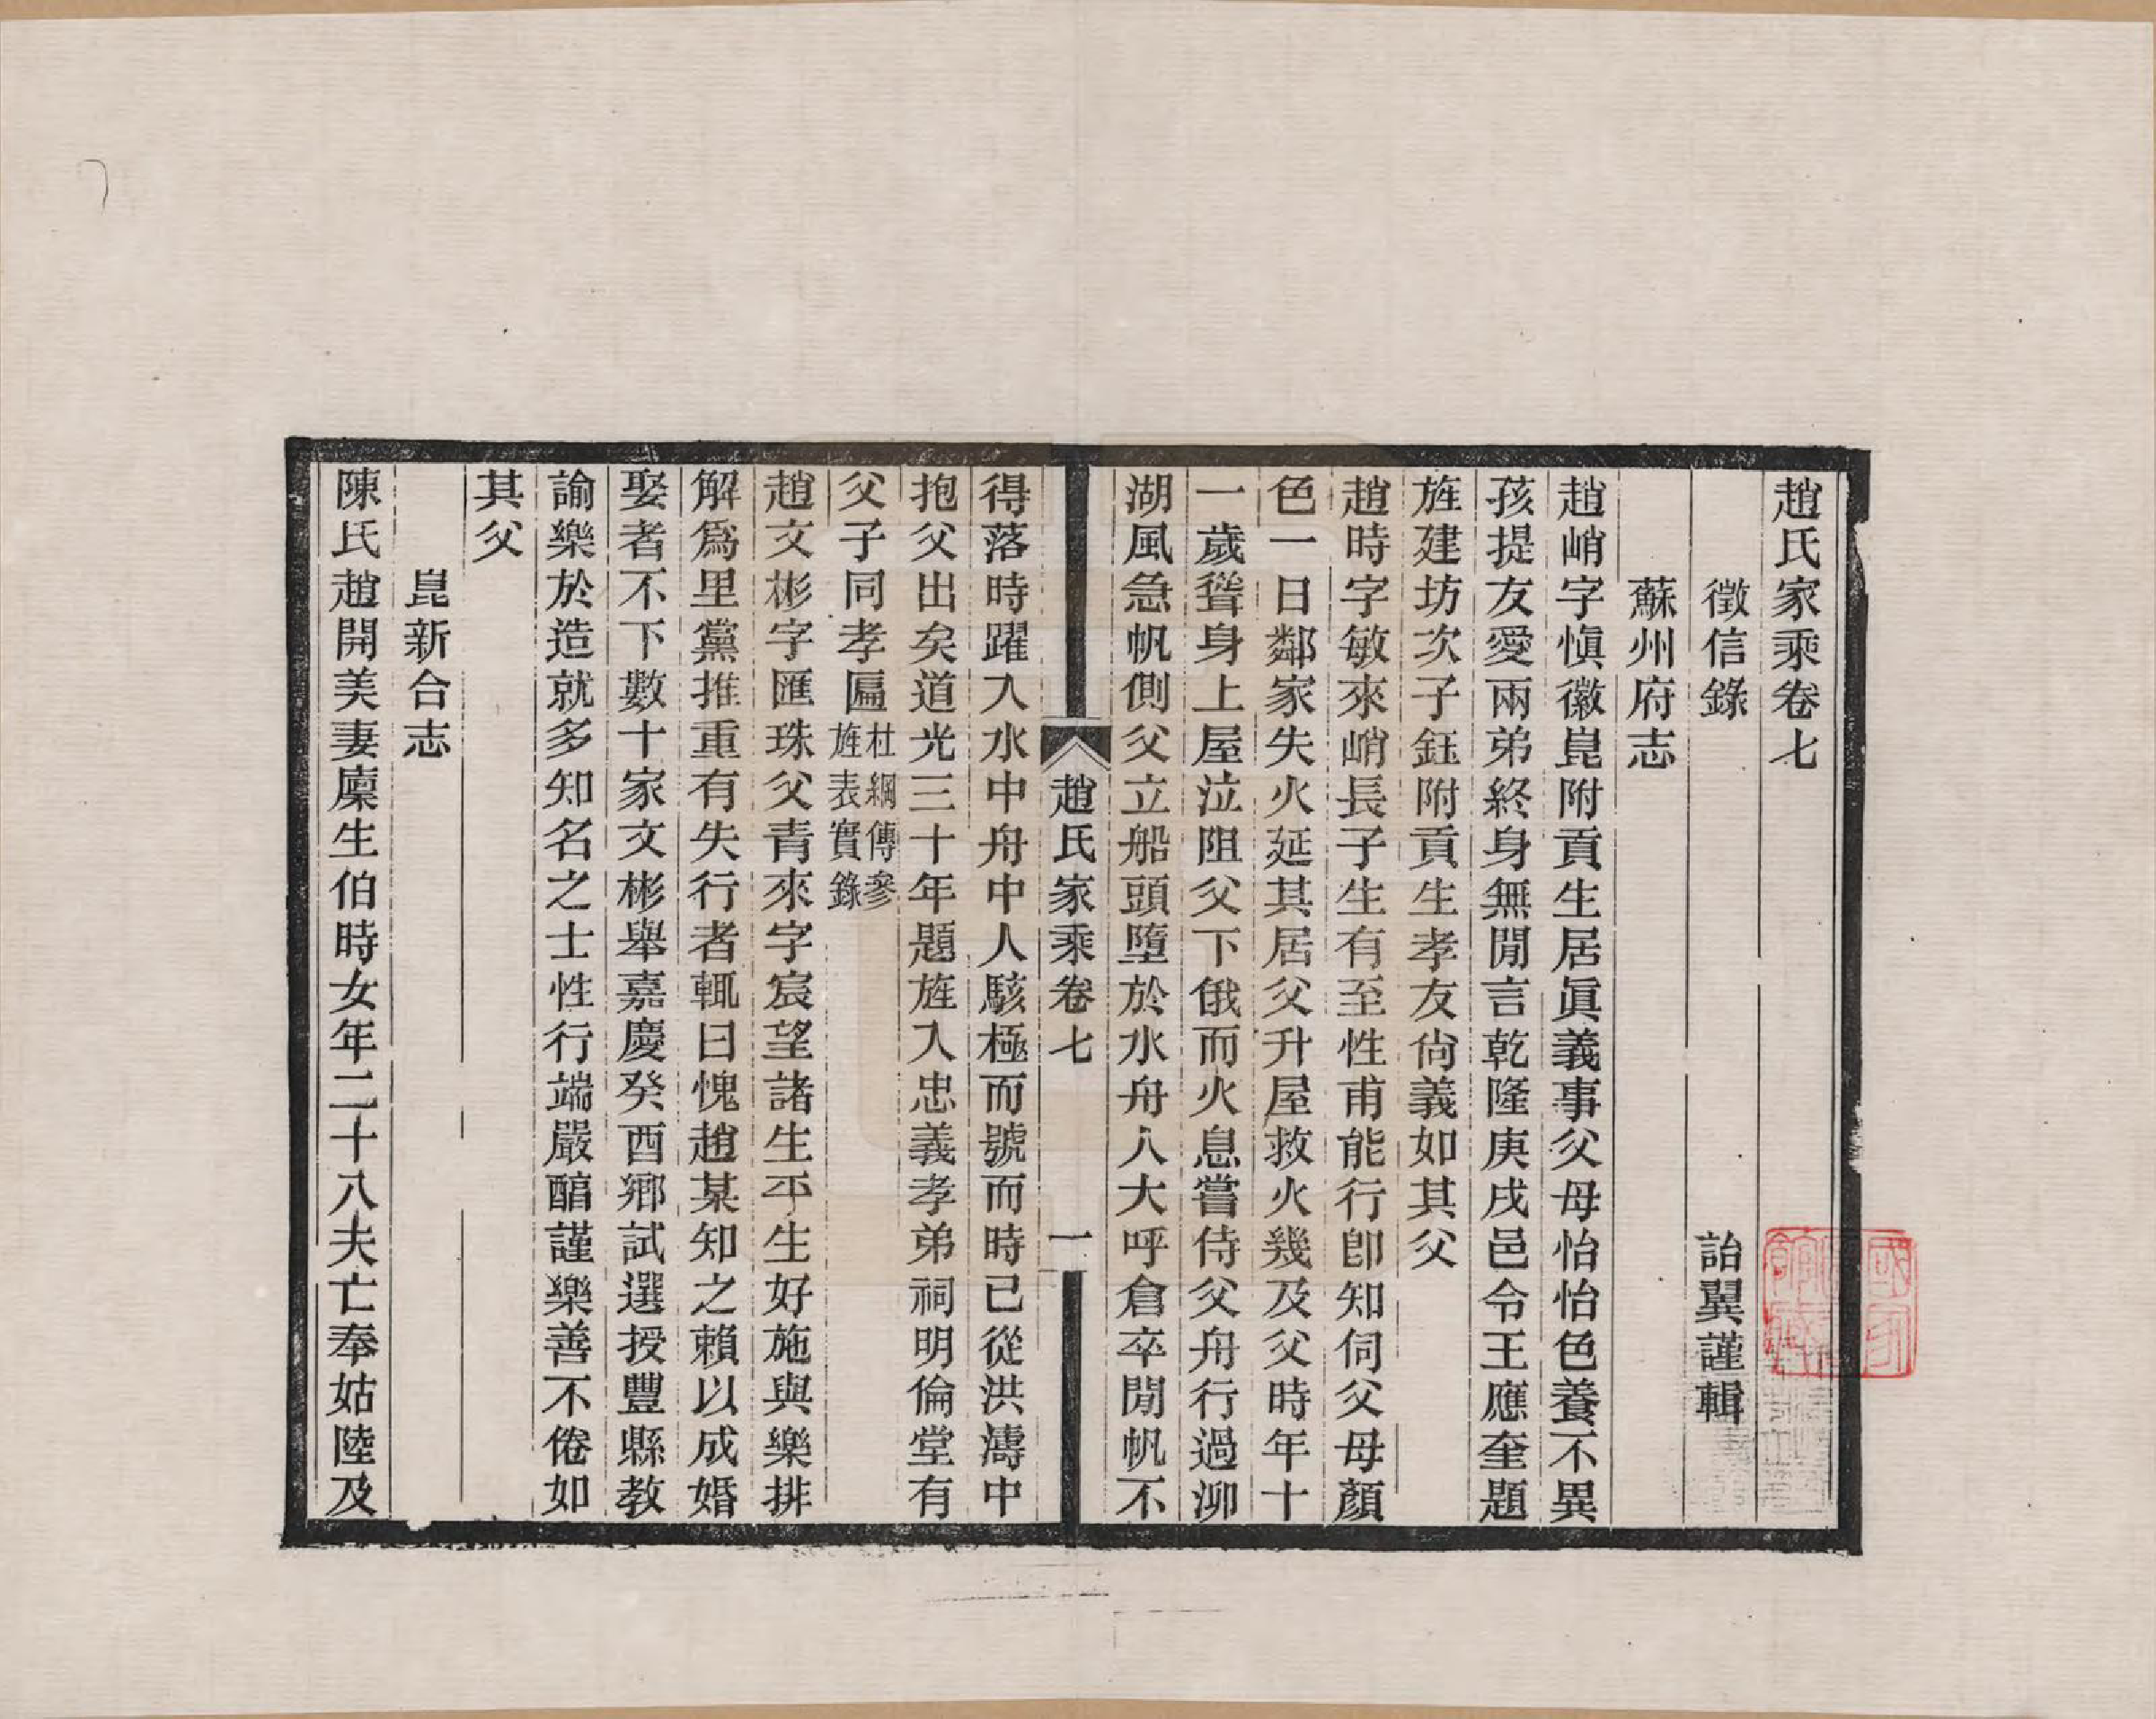 趙氏家乘卷七
徵信錄
詒翼謹輯
蘇州府志
趙峭字愼徽崑附貢生居眞義事父母怡怡色養不異
孩提友愛兩弟終身無閒言乾隆庚戌邑令王應奎題
旌建坊次子鈺附貢生孝友尙義如其父
趙時字敏來峭長子生有至性甫能行卽知伺父母顏
色一日鄰家失火延其居父升屋救火幾及父時年十
一歲聳身上屋泣阻父下俄而火息嘗侍父舟行過泖
湖風急帆側父立船頭墮於水舟人大呼倉卒閒帆不
趙氏家乘卷七
一
得落時躍入水中舟中人駭極而號而時已從洪濤中
抱父出矣道光三十年題旌入忠義孝弟祠明倫堂有
父子同孝匾杜綱傳參
旌表實錄
趙文彬字匯珠父青來字宸望諸生平生好施與樂排
解爲里黨推重有失行者輒曰愧趙某知之賴以成婚
娶者不下數十家文彬舉嘉慶癸酉鄉試選授豐縣教
諭樂於造就多知名之士性行端嚴醕謹樂善不倦如
其父
崑新合志
陳氏趙開美妻廩生伯時女年二十八夫亡奉姑陸及